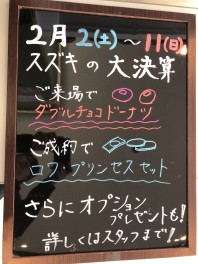 2月2(土)〜11(日)
スズキの大決算
ご来場で
ダブルチョコドーナツ
ご成約で
ロワ・プリンセスセット
さらにオプション
プレゼントも!
詳しくはスタッフまで!